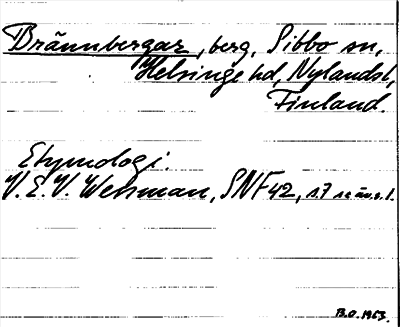 Brännbergar, berg, Sibbo sn,
Helsinge hd, Nylands l,
Finland.
Etymologi.
V. E. V. Wessman, SNF 42, s. 7
B.O. 1963.